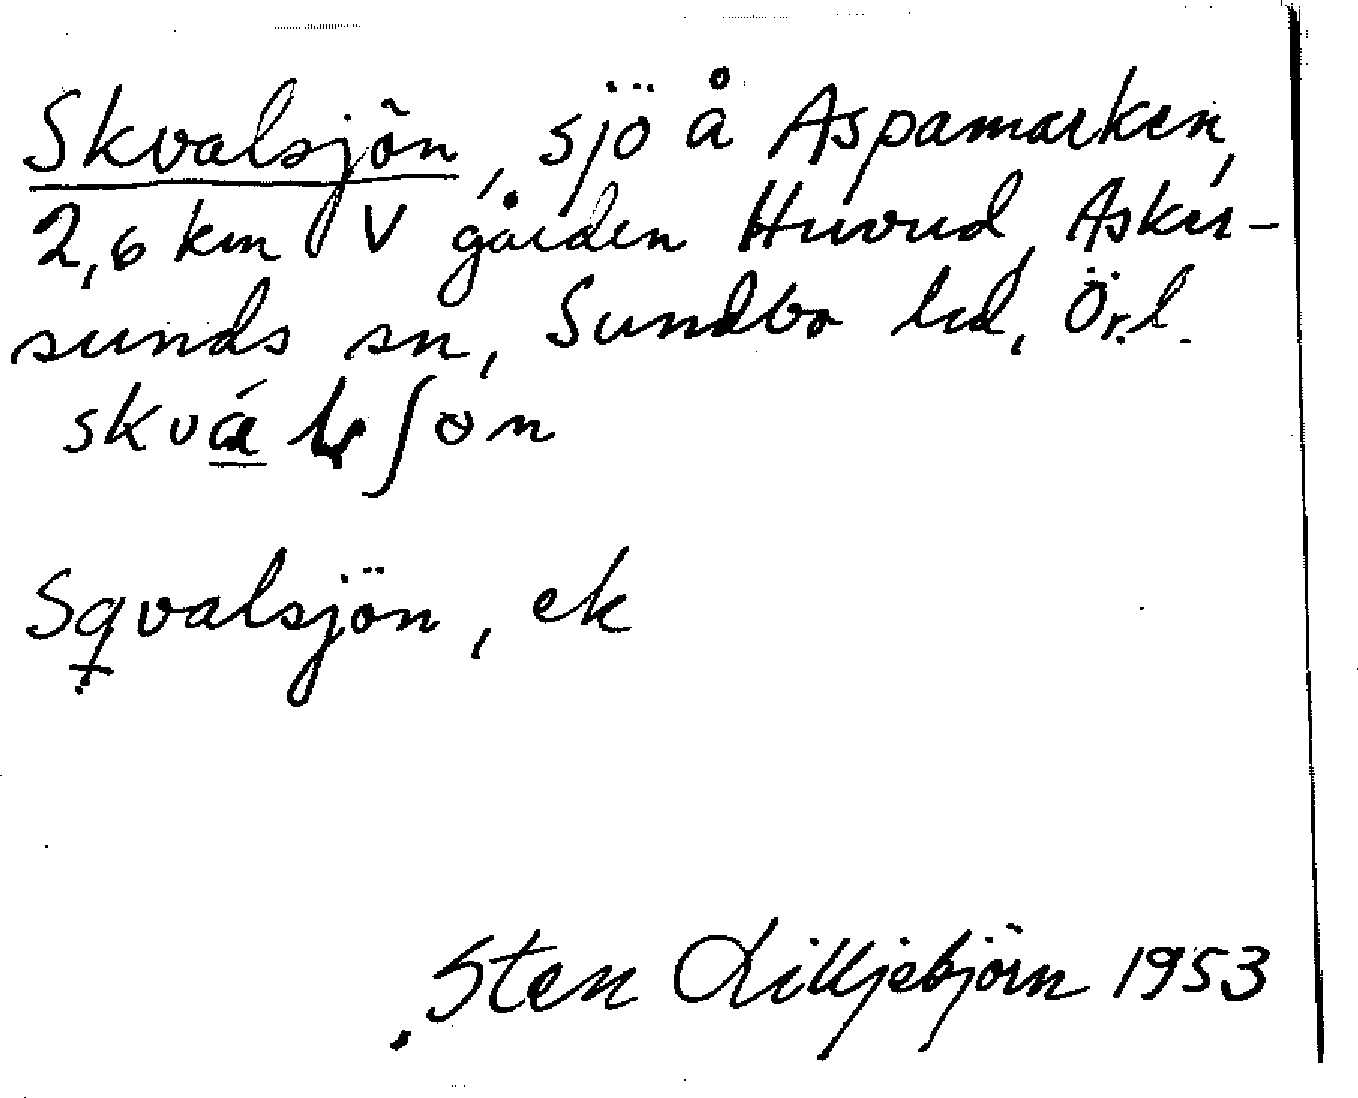 Skvalsjön, sjö å Aspamarken,
2,6 km V gården Huvud, Asker-
sunds sn, Sundbo hd, Örl.
Sqvalsjön, ek
Sten Lilljebjörn 1953